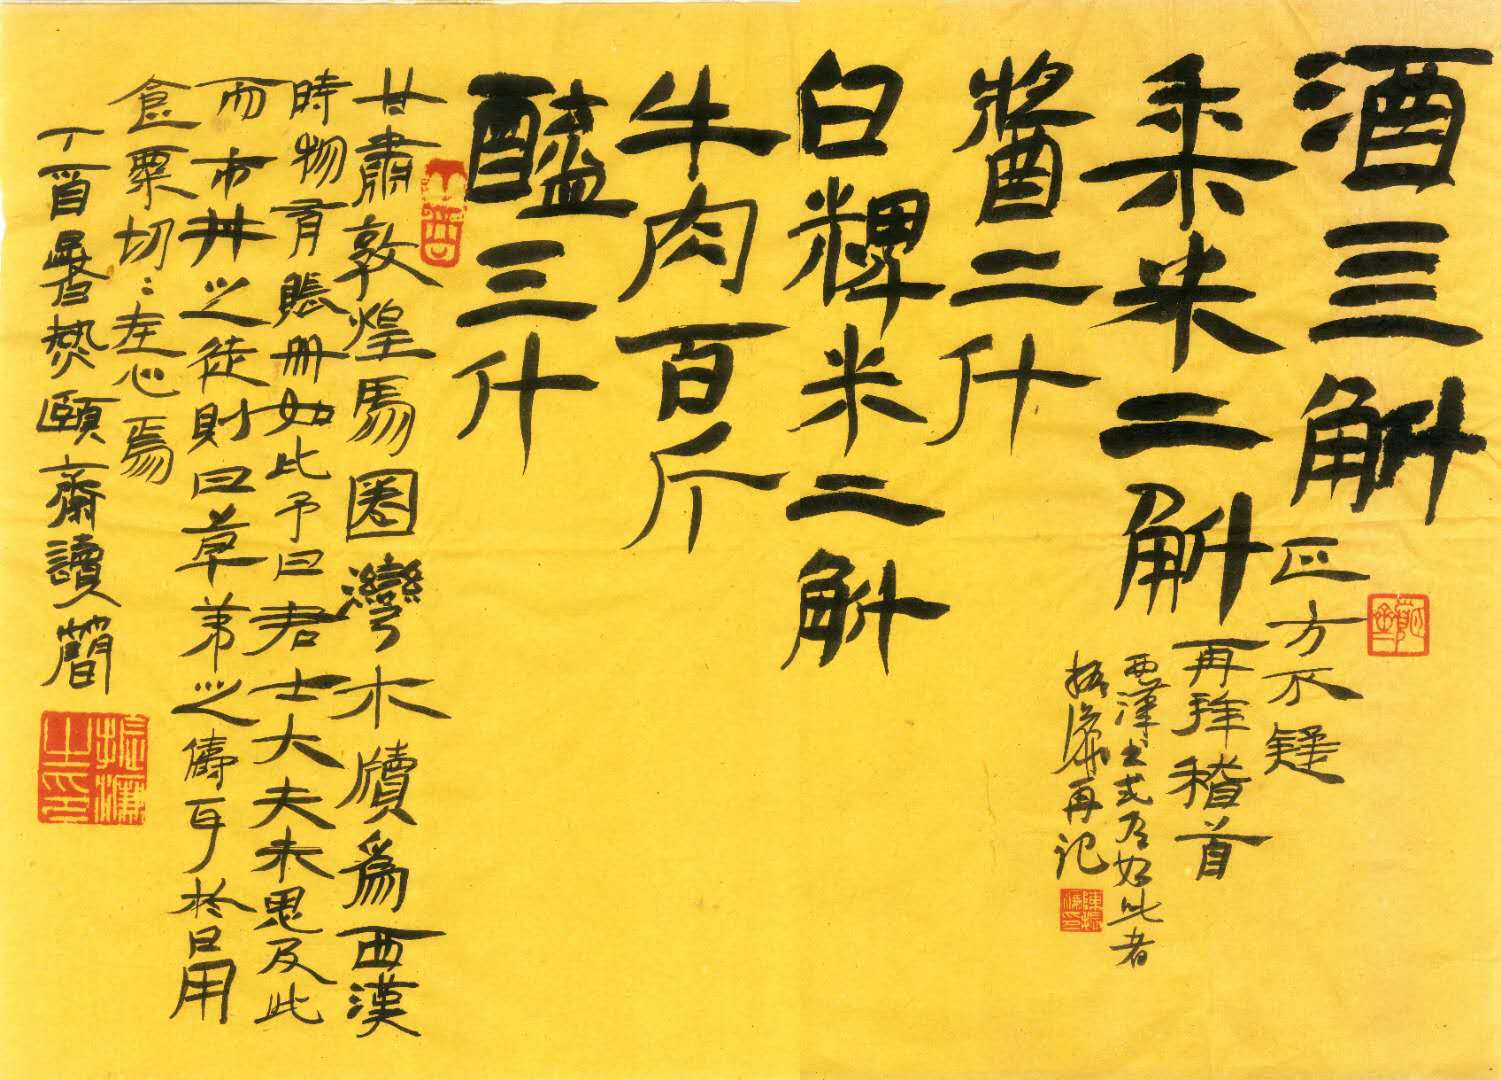 酒三斛
正方不疑
黍米二斛
再拜稽首
西漢
者
再記
醬二升
白粺米二斛
牛肉百斤
醯三升
丁酉
甘肅敦煌馬圈灣木牘為西漢
時物有賬冊如此予曰君士大夫未思及此
而市井之徒則曰草弟之儔耳於日用
食粟切〻在心焉
丁酉暑熱頤齋讀簡